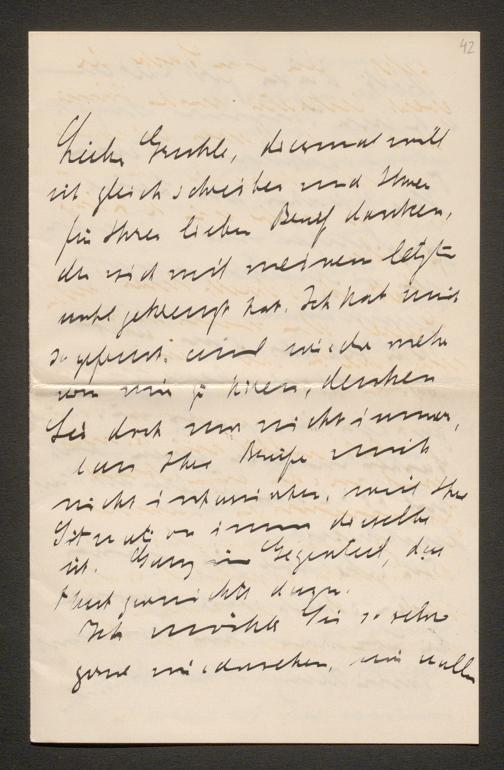 42
Lieber Gruhle, diesmal will
ich gleich schreiben und Ihnen
für Ihren lieben Brief danken,
der sich mit meinem letzten
wohl gekreuzt hat. Ich hab mich
so gefreut, einmal wieder mehr
von Ihnen zu hören, denken
Sie doch nur nicht immer,
dass Ihre Briefe mich
nicht interessieren, weil Ihre
Situation immer dieselbe
ist. Ganz im Gegenteil, das
thut garnichts dazu.
Ich möchte Sie so sehr
gerne wiedersehen, wir wollen